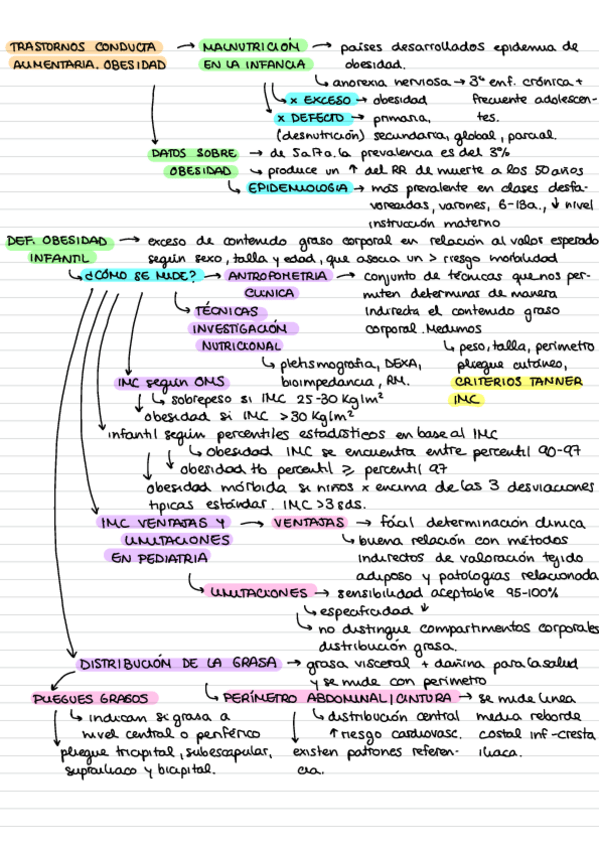 TRASTORNOS CONDUCTA → MALNUTRICIÓN → países desarrollados epidemia de
ALIMENTARIA. OBESIDAD EN LA INFANCIA obesidad.
↳ anorexia nerviosa → 3ª enf. crónica +
↳ x EXCESO → obesidad frecuente adolescen-
x DEFECTO → primaria, tes.
(desnutrición) secundaria, global, parcial.
DATOS SOBRE → de 5 a 17a. la prevalencia es del 3%
OBESIDAD ↳ produce un ↑ del RR de muerte a los 50 años
↳ EPIDEMIOLOGIA → más prevalente en clases desfa-
vorecidas, varones, 6-13a., ↓ nivel
instrucción materno
DEF. OBESIDAD → exceso de contenido graso corporal en relación al valor esperado
INFANTIL según sexo, talla y edad, que asocia un > riesgo morbilidad
↳ ¿CÓMO SE MIDE? → ANTROPOMETRIA → conjunto de técnicas que nos per-
CLINICA miten determinar de manera
↳ TÉCNICAS indirecta el contenido graso
INVESTIGACIÓN corporal. Medimos
NUTRICIONAL ↳ peso, talla, perímetro
↳ pletismografia, DEXA, pliegue cutáneo,
IMC según OMS bioimpedancia, RM. CRITERIOS TANNER
↳ sobrepeso si IMC 25-30 Kg/m² IMC
obesidad si IMC >30 Kg/m²
infantil según percentiles estadísticos en base al IMC
↳ obesidad IMC se encuentra entre percentil 90-97
obesidad tb percentil ⩾ percentil 97
obesidad mórbida si niños x encima de las 3 desviaciones
típicas estándar. IMC >3 sds.
IMC VENTAJAS Y → VENTAJAS → fácil determinación clínica
LIMITACIONES ↳ buena relación con métodos
EN PEDIATRIA indirectos de valoración tejido
adiposo y patologías relacionada
↳ LIMITACIONES → sensibilidad aceptable 95-100%
↳ especificidad ↓
↳ no distingue compartimentos corporales
distribución grasa.
DISTRIBUCIÓN DE LA GRASA → grasa visceral + dañina para la salud
y se mide con perímetro
PLIEGUES GRASOS ↳ PERÍMETRO ABDOMINAL/CINTURA → se mide línea
↳ indican si grasa a ↳ distribución central media reborde
nivel central o periférico ↑ riesgo cardiovasc. costal inf-cresta
pliegue tricipital, subescapular, existen patrones referen- iliaca.
suprailiaco y bicipital. cia.